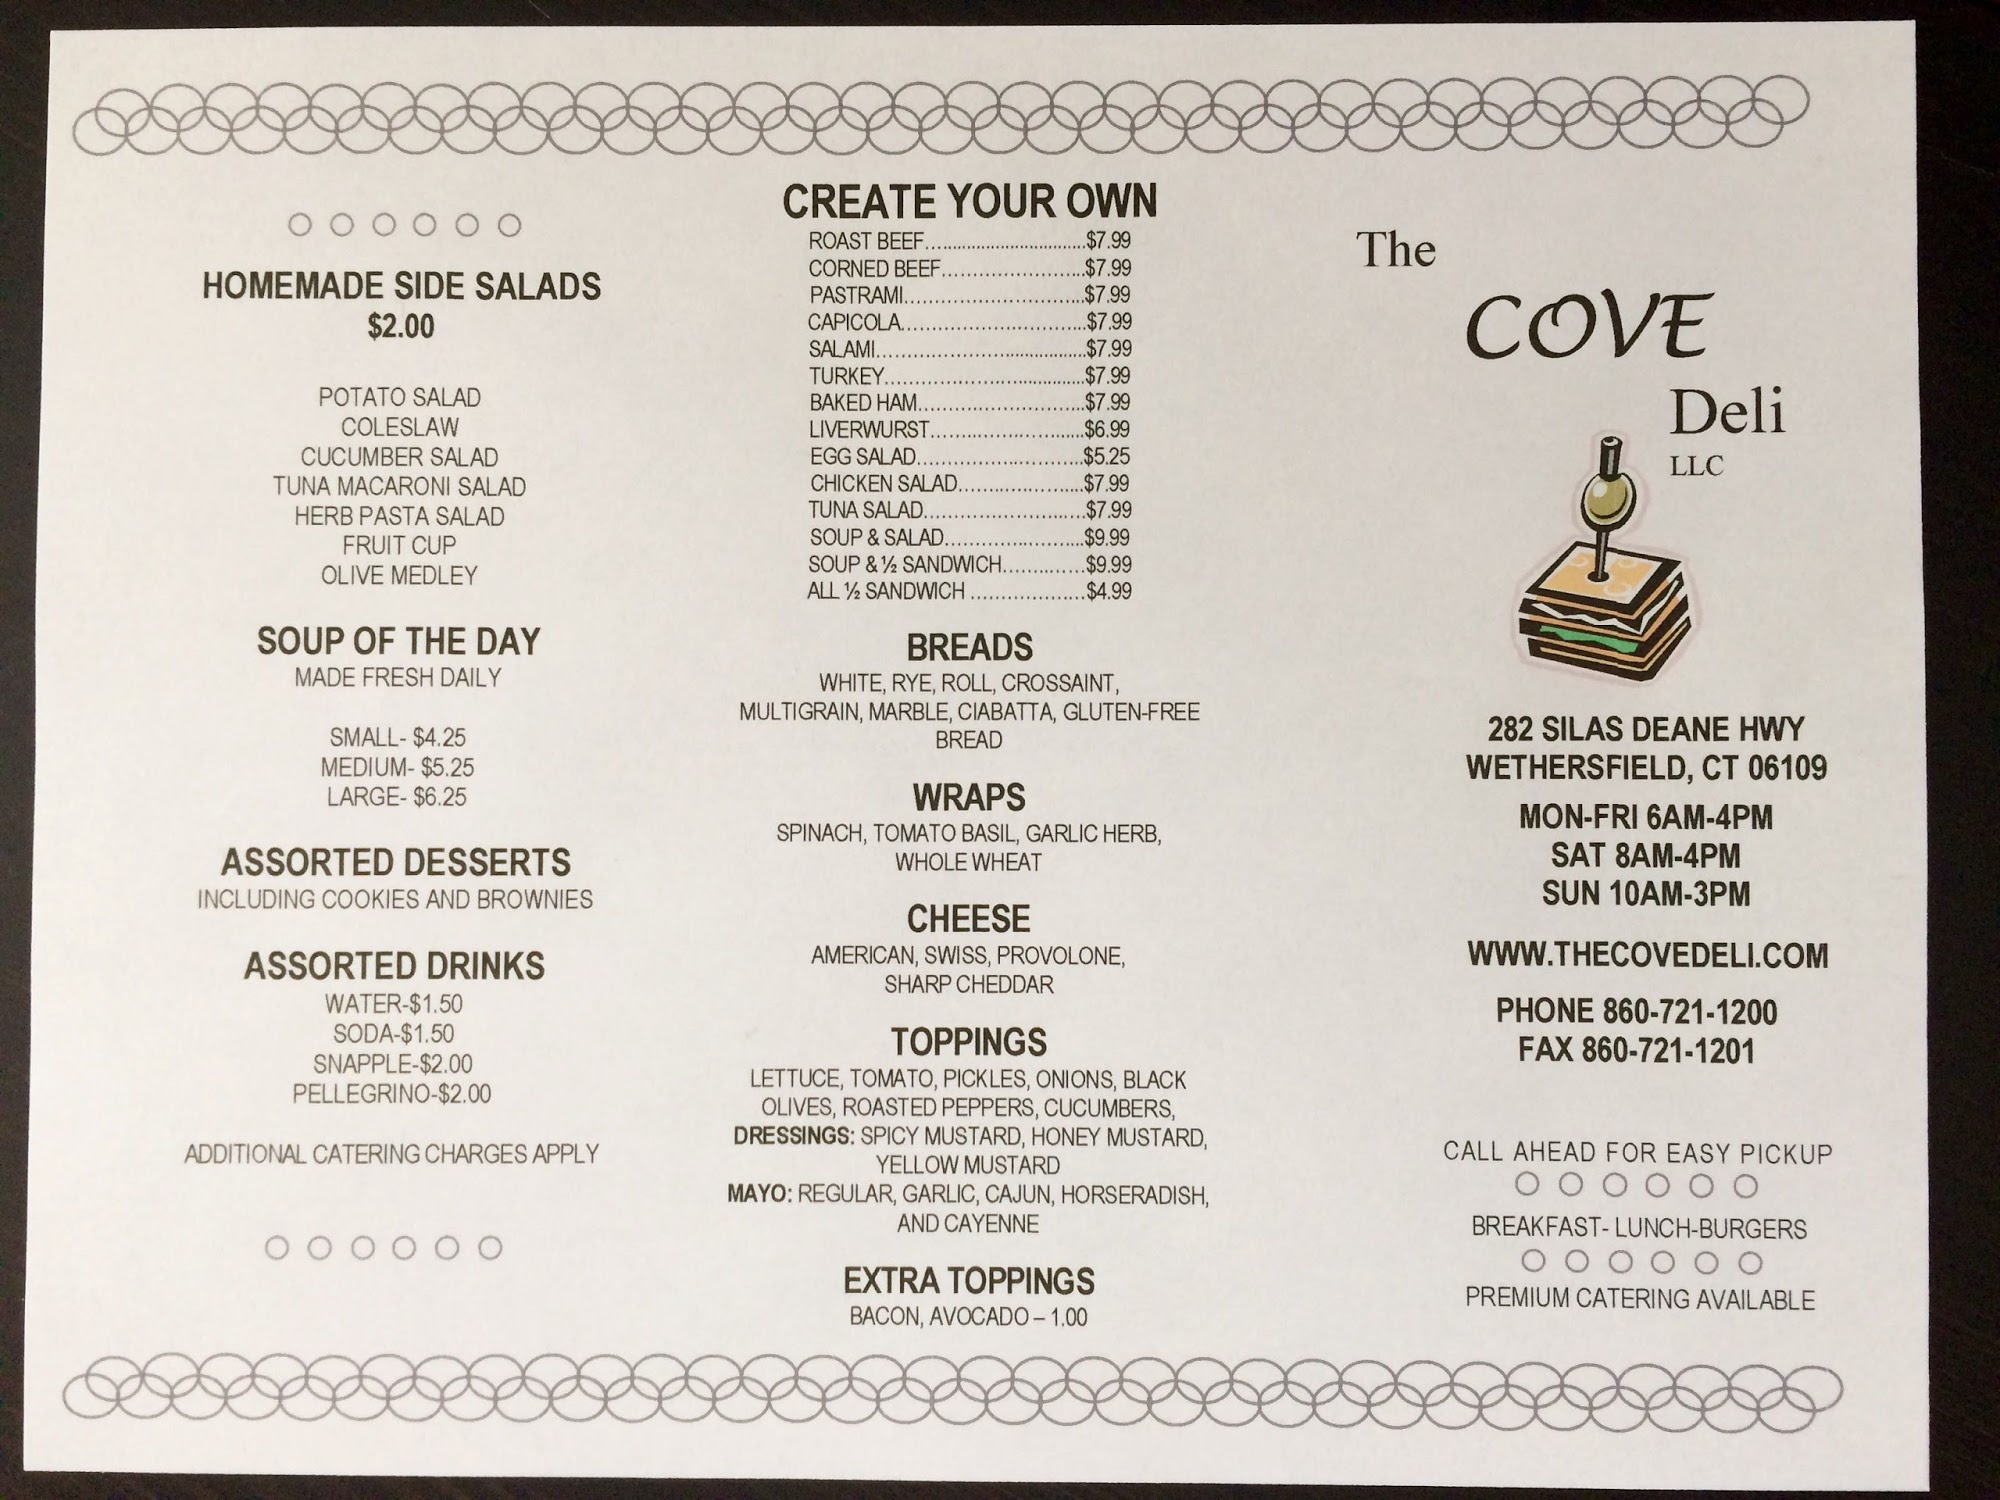 HOMEMADE SIDE SALADS
$2.00
POTATO SALAD
COLESLAW
CUCUMBER SALAD
TUNA MACARONI SALAD
HERB PASTA SALAD
FRUIT CUP
OLIVE MEDLEY
SOUP OF THE DAY
MADE FRESH DAILY
SMALL- $4.25
MEDIUM- $5.25
LARGE- $6.25
ASSORTED DESSERTS
INCLUDING COOKIES AND BROWNIES
ASSORTED DRINKS
WATER-$1.50
SODA-$1.50
SNAPPLE-$2.00
PELLEGRINO-$2.00
ADDITIONAL CATERING CHARGES APPLY
CREATE YOUR OWN
ROAST BEEF................................$7.99
CORNED BEEF........................$7.99
PASTRAMI..............................$7.99
CAPICOLA...............................$7.99
SALAMI...................................$7.99
TURKEY..................................$7.99
BAKED HAM............................$7.99
LIVERWURST..........................$6.99
EGG SALAD............................$5.25
CHICKEN SALAD.....................$7.99
TUNA SALAD...........................$7.99
SOUP & SALAD.......................$9.99
SOUP & ½ SANDWICH..............$9.99
ALL ½ SANDWICH ...................$4.99
BREADS
WHITE, RYE, ROLL, CROSSAINT,
MULTIGRAIN, MARBLE, CIABATTA, GLUTEN-FREE
BREAD
WRAPS
SPINACH, TOMATO BASIL, GARLIC HERB,
WHOLE WHEAT
CHEESE
AMERICAN, SWISS, PROVOLONE,
SHARP CHEDDAR
TOPPINGS
LETTUCE, TOMATO, PICKLES, ONIONS, BLACK
OLIVES, ROASTED PEPPERS, CUCUMBERS,
DRESSINGS: SPICY MUSTARD, HONEY MUSTARD,
YELLOW MUSTARD
MAYO: REGULAR, GARLIC, CAJUN, HORSERADISH,
AND CAYENNE
EXTRA TOPPINGS
BACON, AVOCADO – 1.00
The
COVE
Deli
LLC
282 SILAS DEANE HWY
WETHERSFIELD, CT 06109
MON-FRI 6AM-4PM
SAT 8AM-4PM
SUN 10AM-3PM
WWW.THECOVEDELI.COM
PHONE 860-721-1200
FAX 860-721-1201
CALL AHEAD FOR EASY PICKUP
BREAKFAST- LUNCH-BURGERS
PREMIUM CATERING AVAILABLE